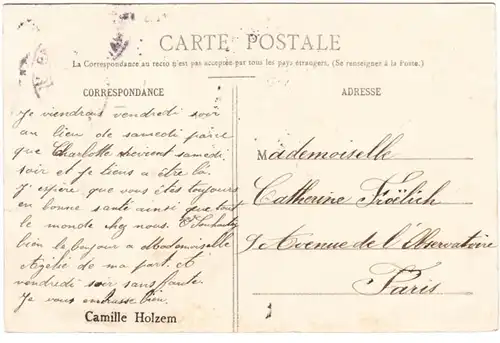 CARTE POSTALE
La Correspondance au recto n'est pas acceptée par tous les pays étrangers, (Se renseigner à la Poste.)
CORRESPONDANCE
Je viendrais vendredi soir
au lieu de samedi parce
que Charlotte revient samedi
soir et je tiens a être là.
J'espère que vous êtes toujours
en bonne santé ainsi que tout
le monde chez nous. Et Souhaitez
bien le bonjour a Mademoiselle
de ma part. A
vendredi soir sans faute.
Je vous embrasse bien.
Camille Holzem
ADRESSE
Mademoiselle
Catherine Fröëlich
9 Avenue de l'Observatoire
Paris